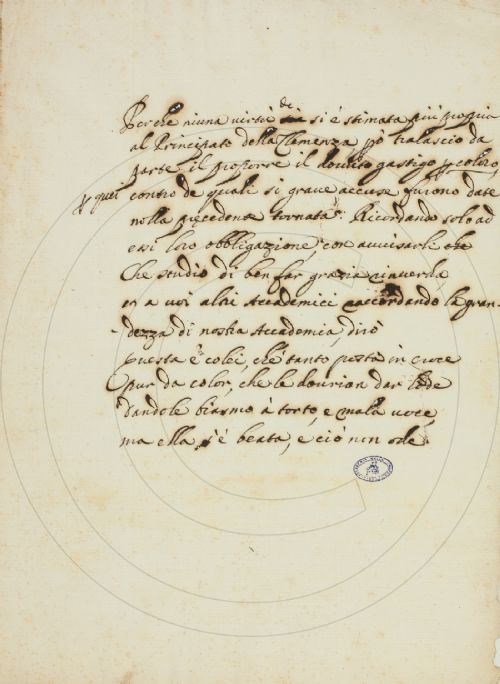 Perche niuna virtù de si è stimata più propria
al Principato della Clemenza, però tralascio da
parte il proporse il dovuto gastigo p coloro,
p quei contro de quali si grave accuse furono date
nella precedente tornata: Ricordando solo ad
essi loro obbligazione, con avvisarli che
Che studio di ben far grazia rinverda
et a voi altri Accademici raccordando la gran-
dezza di nostra Accademia, dirò
Questa è colei, ch'è tanto posta in croce
Pur da color, che le dovrian dar lode
Dandole biasmo à torto, e mala voce
ma ella s'è beata, e ciò non ode